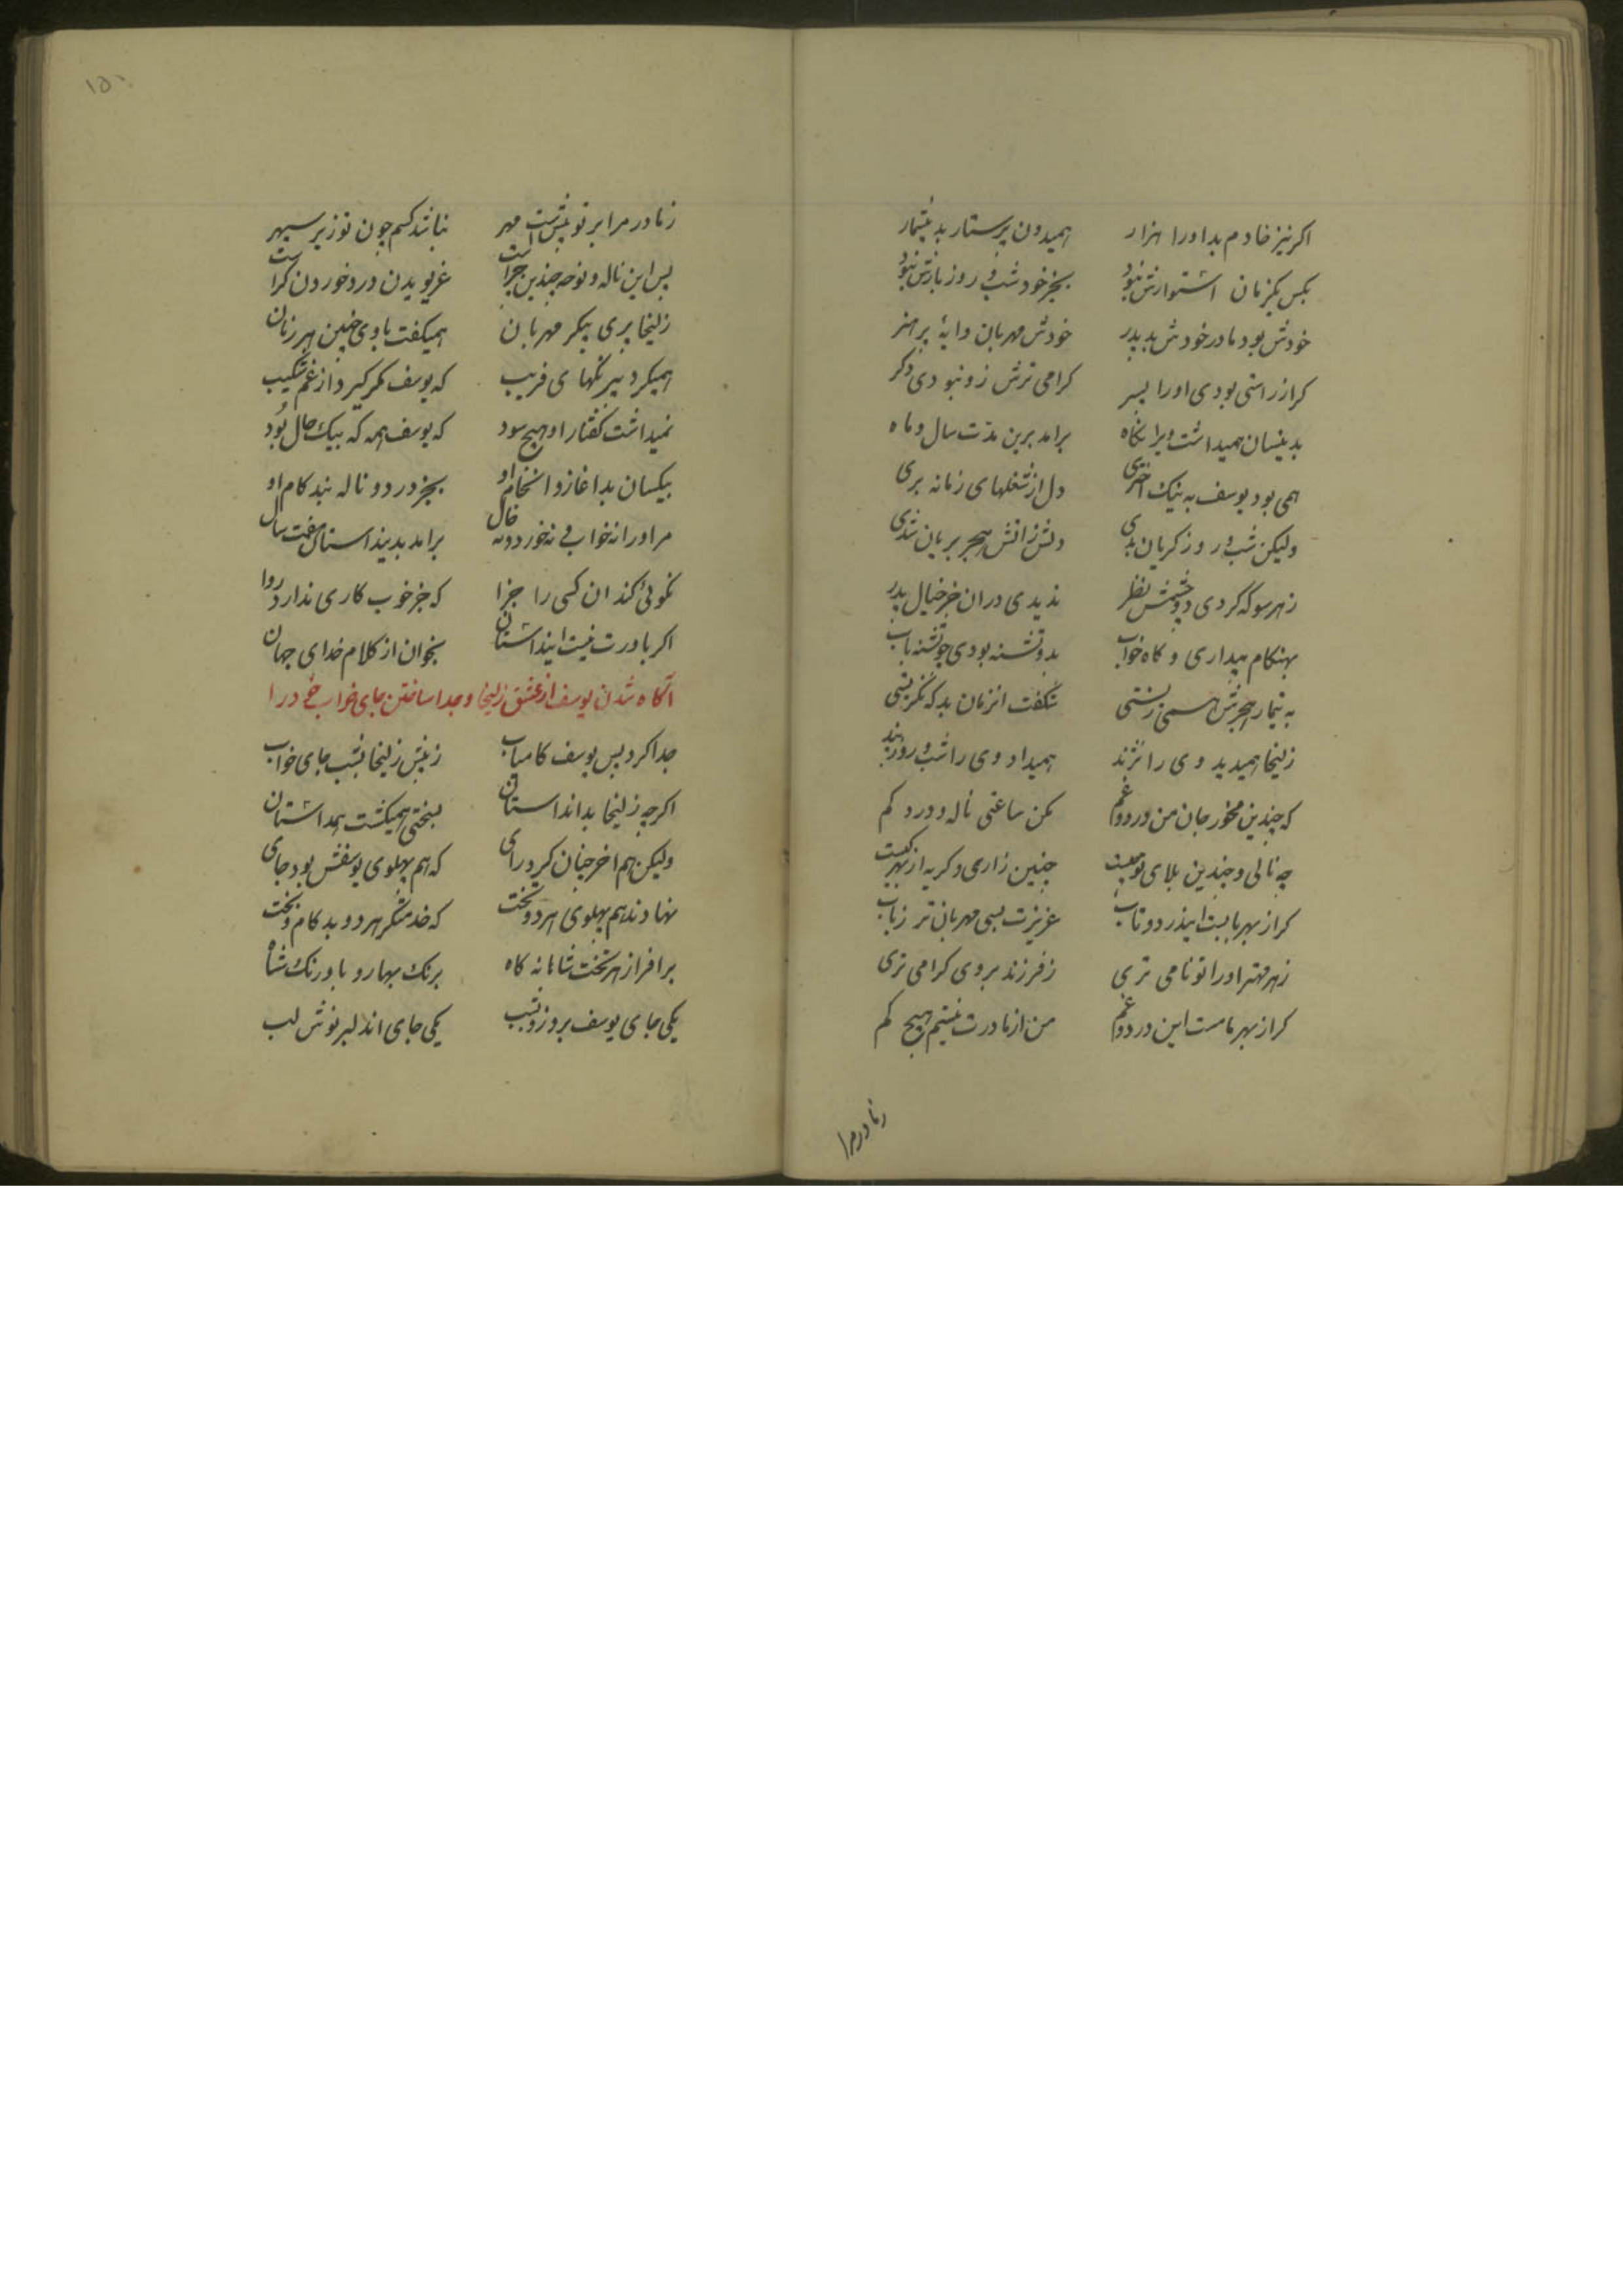 اکر نیز خادم بد اورا هزار همیدون پرستار بد بیشمار
بکس یکزمان استوارش نبود بجز خود شب و روز یارش نبود
خودش بود مادر خودش بد پدر خودش مهربان دایهٔ پر هنر
کر از راستی بودی اورا پسر کرامی ترش زو نبودی دکر
بدینسان همیداشت ویرا نگاه برامد برین مدّت سال و ماه
همی بود یوسف به نیک اختری دل از شغلهای زمانه بری
ولیکن شب و روز کریان بدی دلش زاتش هجر بریان شدی
زهر سو که کردی دو چشمش نظر ندیدی دران جز خیال پدر
بهنکام بیداری و کاه خواب بدو تشنه بودی چو تشنه باب
به تیمار هجرش همی زیستی شکفت انزمان بد که نکریستی
زلیخا همیدید وی را نژند همیداد وی را شب و روز پند
که چندین مخور جان من درد و غم مکن ساعتی ناله و درد کم
چه نالی و چندین بلای تو چیست چنین زاری و کریه از بهر کیست
کر از بهر بابست ایندرد و تاب عزیزت بسی مهربان تر ز باب
زهر مهتر اورا تو نامی تری ز فرزند بر وی کرامی تری
کر از بهر مامست این درد و غم من از مادرت نیستم هیچ کم
زمادر مرا
۱۵۰
ز مادر مرا بر تو بیش است مهر نباشد کسم چون تو زیر سپهر
پس این ناله و نوحه چندین چراست غریویدن و درد خوردن کراست
زلیخا پری پیکر مهربان همیکفت با وی چنین هر زمان
همیکرد نیرنکهای فریب که یوسف مکر کیرد از غم شکیب
نمیداشت کفتار او هیچ سود که یوسف همه که بیک حال بود
بیکسان بد اغاز و انجام او بجز درد و ناله نبد کام او
مر اورا نه خواب و نه خورد و نه هال برامد بدینداستان هفت سال
نکوئی کند ان کسی را جزا که جز خوب کاری ندارد روا
اکر باورت نیست اینداستان بخوان از کلام خدای جهان
آکاه شدن یوسف از عشق زلیخا و جدا ساختن جای خواب خود را
جدا کرد پس یوسف کامیاب ز پیش زلیخا بشب جای خواب
اکرچه زلیخا بدانداستان بسختی همیکشت همداستان
ولیکن هم اخر چنان کرد رای که هم پهلوی یوسفش بود جای
نهادند هم پهلوی هر دو تخت که خدمتکر هر دو بد کام و بخت
بر افراز هر تخت شاهانه کاه برنک بهار و باورنک شاه
یکی جای یوسف بروز و بشب یکی جای اندلبر نوش لب